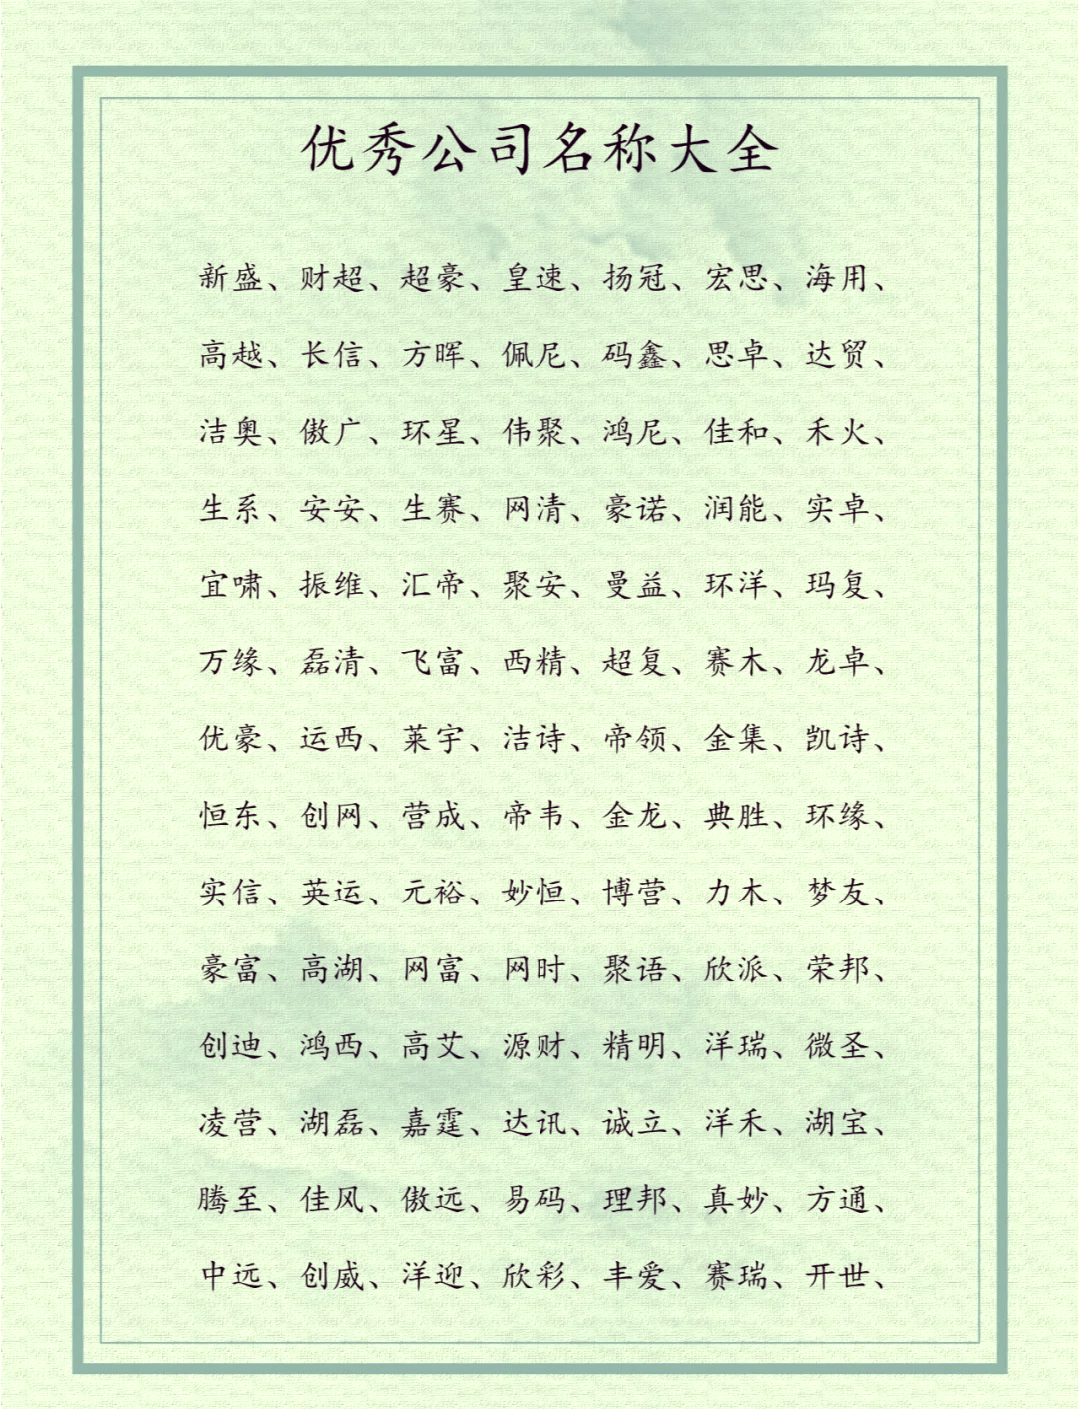 优秀公司名称大全
新盛、财超、超豪、皇速、扬冠、宏思、海用、
高越、长信、方晖、佩尼、码鑫、思卓、达贸、
洁奥、傲广、环星、伟聚、鸿尼、佳和、禾火、
生系、安安、生赛、网清、豪诺、润能、实卓、
宜啸、振维、汇帝、聚安、曼益、环洋、玛复、
万缘、磊清、飞富、西精、超复、赛木、龙卓、
优豪、运西、莱宇、洁诗、帝领、金集、凯诗、
恒东、创网、营成、帝韦、金龙、典胜、环缘、
实信、英运、元裕、妙恒、博营、力木、梦友、
豪富、高湖、网富、网时、聚语、欣派、荣邦、
创迪、鸿西、高艾、源财、精明、洋瑞、微圣、
凌营、湖磊、嘉霆、达讯、诚立、洋禾、湖宝、
腾至、佳风、傲远、易码、理邦、真妙、方通、
中远、创威、洋迎、欣彩、丰爱、赛瑞、开世、